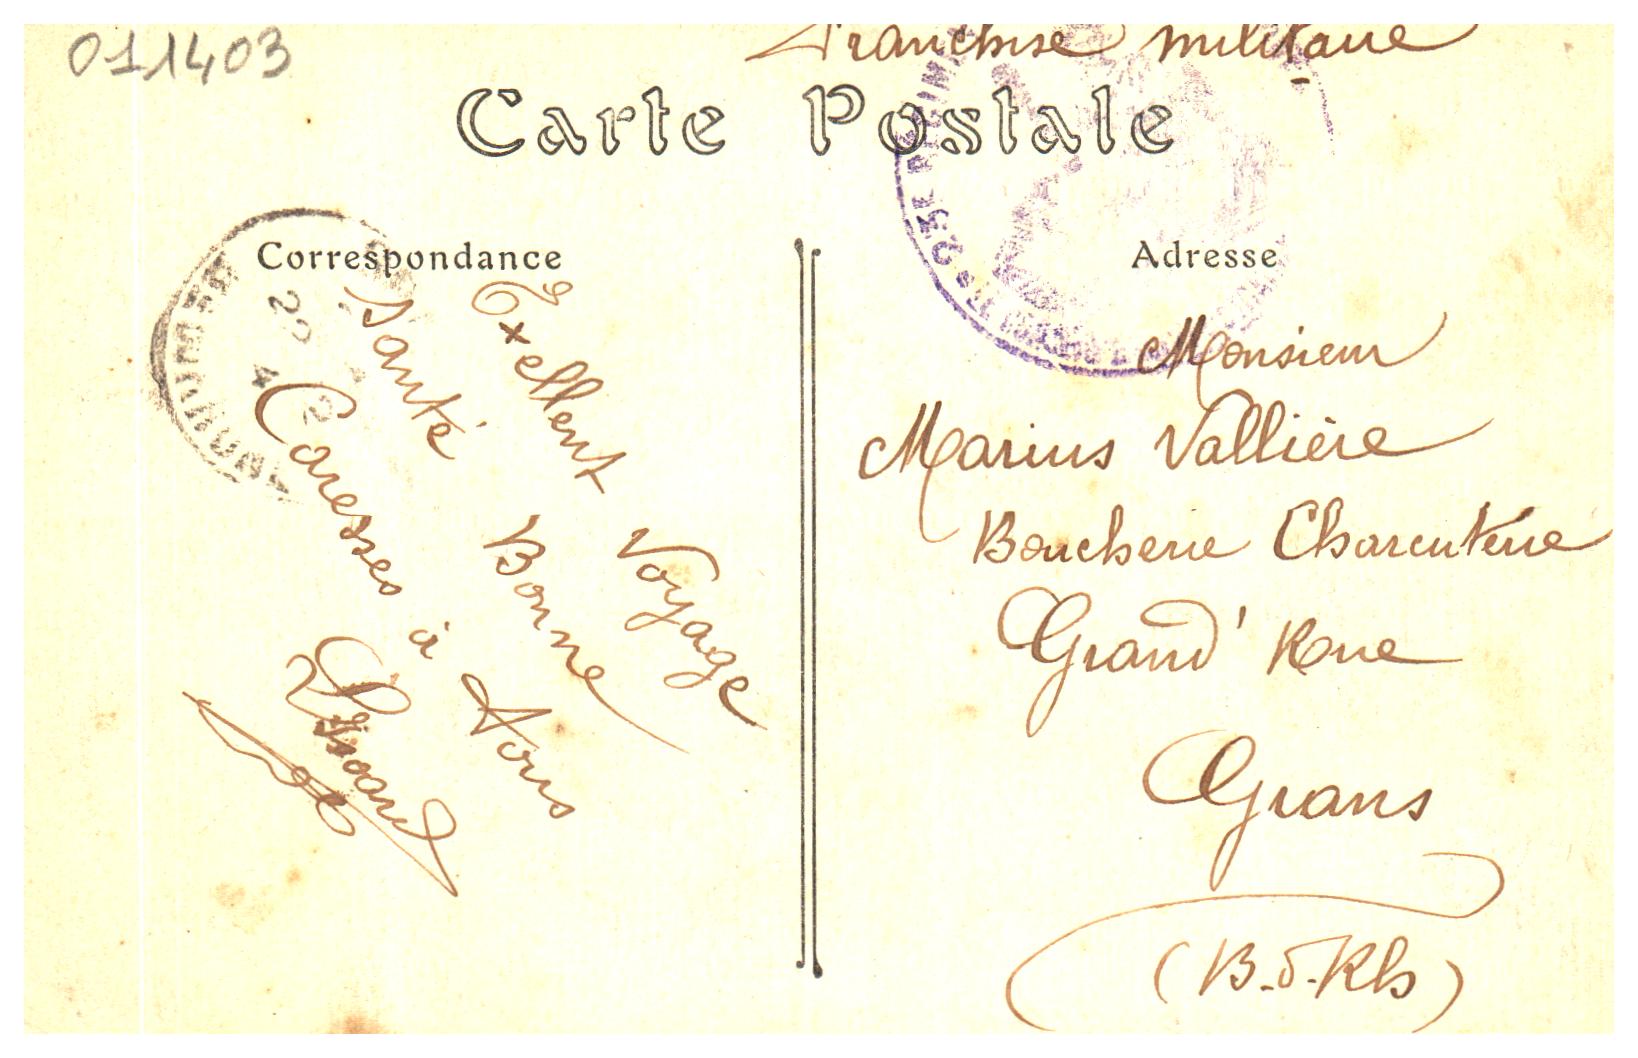 011403
Franchise militaire
Carte Postale
Correspondance
Exellent Voyage
Bonne
Santé
Caresses à Tous
Adresse
Monsieur
Marius Vallière
Boucherie Charcuterie
Grand' Rue
Grans
(B.d.Rh)